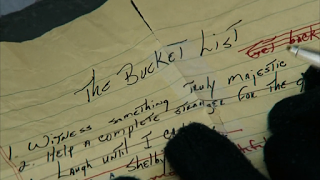 The Bucket List
Get back
1. Witness something truly majestic
2. Help a complete stranger for the
Laugh until I
a Shelby